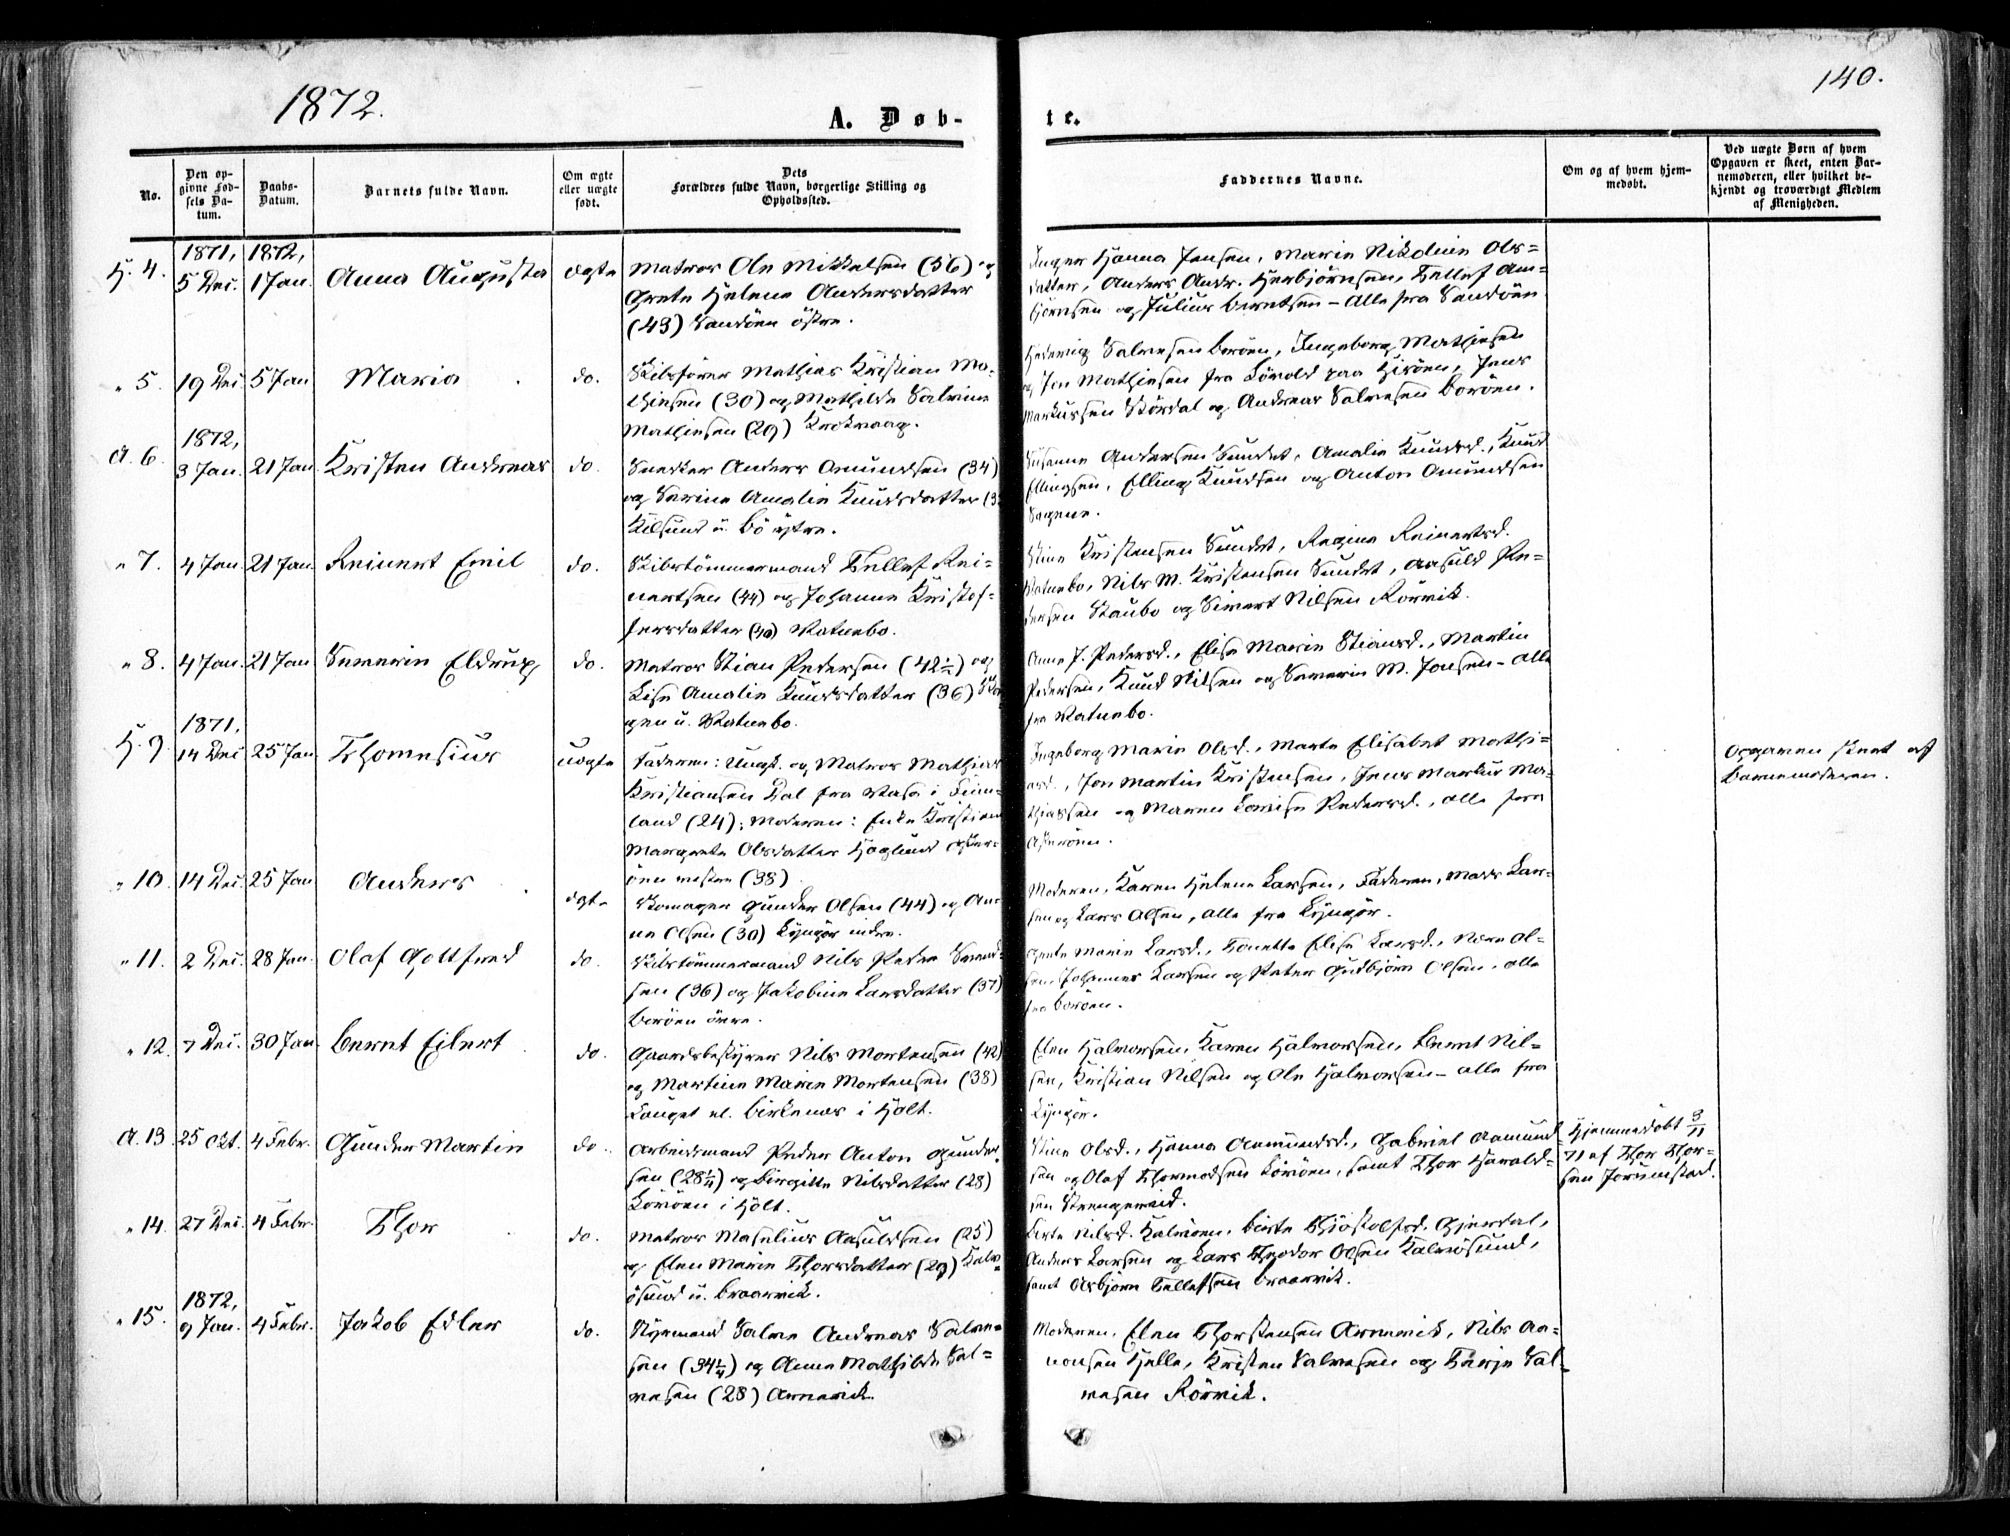 1872.
140.
A. Døb-
te.
No.
Den op-
givne Fød-
sels Da-
tum.
Daabs-
Datum.
Barnets fulde Navn.
Om ægte
eller uægte
født.
Dets
Forældres fulde Navn, borgerlige Stilling og
Opholdssted.
Faddernes Navne.
Om og af hvem hjem-
medøbt.
Ved uægte Børn af hvem
Opgaven er skeet, enten Bar-
nemoderen, eller hvilket be-
kjendt og troværdigt Medlem
af Menigheden.
1871, 1872,
H. 4. 5 Dec. 1 Jan. Anna Augusta ægte Matros Ole Mikkelsen (56) og
Grete Helene Andersdatter
(43) Sandöen östre.
Inger Hanna Jensen, Marie Nikoline Ols=
datter, Anders Andr. Herbjörnsen, Tellef Am=
björnsen og Julius Berntsen - alle fra Sandöen
" 5. 19 Dec 5 Jan Maria do. Skibsförer Mathias Kristian Ma-
thiesen (30) og Mathilde Salvine
Mathiesen (29) Krokvaag.
Hedevig Salvesen Boröen, Ingeborg Mathiesen
og Jon Mathiesen fra paa Gjeröen, Jens
Markussen og Andreas Salvesen Boröen.
1872,
A. 6. 3 Jan. 21 Jan Kristen Andreas do. Snedker Anders Amundsen (34)
og Serine Amalie Knudsdatter
Kilsund u. Bö östre.
Susanne Andersen Sundet, Amalie Knudsd., Knud
Ellingsen, Elling Knudsen og Anton Amundsen
" 7. 4 Jan. 21 Jan. Reinert Emil do. Skibstömmermand Tellef Rei-
nertsen (44) og Johanne Kristof-
fersdatter (40) Vatnebo.
Stine Kristensen Sundet, Regine Reinertsd.
Vatnebo, Nils M. Kristensen Sundet, Aasuld Pe-
dersen Staubo og Sivert Nilsen Rörvik.
" 8. 4 Jan. 21 Jan Severin Eldrup do. Matros Stian Pedersen (42½) og
Lise Amalie Knudsdatter (36)
gen u. Vatnebo.
Anne J. Pedersd., Elise Marie Stiansd., Martin
Pedersen, Knud Nilsen og Severin M. Jensen - alle
fra Vatnebo.
1871,
H. 9. 14 Dec 25 Jan Thomesius uægte Faderen: Ungk. og Matros Mathias
Kristiansen Dal fra Vasa i Finn-
land (24); Moderen: Enke Kristiane
Margrete Olsdatter Höglund
öen vestre (38)
Ingeborg Marie Olsd., Marte Elisabet Mathi-
asd., Jon Martin Kristensen, Jens Markus Ma-
thiassen og Maren Lovise Pedersd., alle fra
Opgaven skeet af
Barnemoderen.
" 10. 14 Dec. 25 Jan Anders ægte Skomager Gunder Olsen (44) og An-
ne Olsen (30) Lyngör indre.
Moderen, Karen Helene Larsen, Faderen, Mads Lar-
sen og Lars Olsen, alle fra Lyngör.
" 11. 2 Dec. 28 Jan. Olaf Gottfred do. Skibstömmermand Nils Peder Svend-
sen (36) og Jakobine Larsdatter (37)
Boröen övre.
Grete Marie Larsd., Tonette Elise Larsd., Ol-
sen, Johannes Larsen og Peter Gudbjörn Olsen, alle
fra Boröen.
" 12. 7 Dec. 30 Jan. Bernt Eilert do. Gaardsbestyrer Nils Mortensen (42)
og Martine Marie Mortensen (38)
Lauget el. Birkenes i Holt.
Elen Halvorsen, Karen Halvorsen, Bernt Nil-
sen, Kristian Nilsen og Ole Halvorsen - alle fra
Lyngör.
A. 13. 25 Okt. 4 Febr. Gunder Martin do. Arbeidsmand Peder Anton Gunder-
sen (28¼) og Birgitte Nilsdatter (28)
i Holt.
Stine Olsd., Hanna Aamundsd., Gabriel Aamund-
sen og Olaf Thormodsen samt Thor Harald-
sen
Hjemmedöbt 9/11
71 af Thor Thor-
sen Jorunstad.
" 14. 27 Dec. 4 Febr. Thor do. Matros Maselius Aasuldsen (25)
og Elen Marie Thorsdatter (29) Kalv-
ösund u. Braarvik.
Nilsd. Kalvöen, Berte Thjostolfsd. Gjerdal,
Anders Larsen og Lars Theodor Olsen Kalvösund,
samt Asbjörn Tellefsen Braarvik.
1872,
" 15. 9 Jan. 4 Febr. Jakob Edler do. Styrmand Salve Andreas Salve-
sen (34¼) og Anne Mathilde Sal-
vesen (28) Arnevik.
Moderen, Elen Thorstensen Arnevik, Nils Aa-
nonsen Helle, Kristen Salvesen og Terje Sal-
vesen Rörvik.